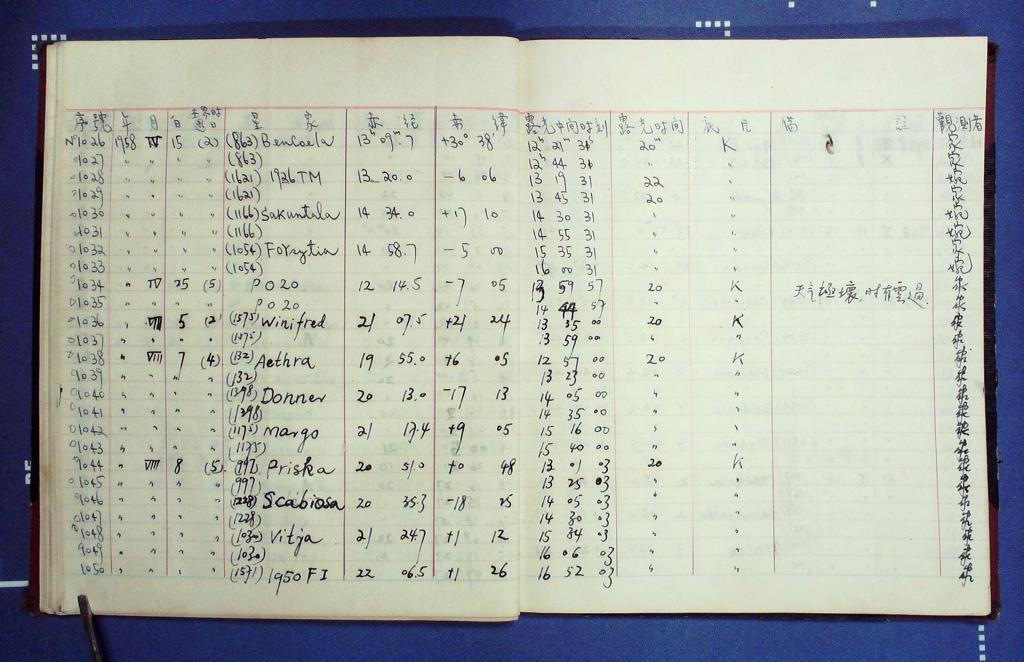 序號 年 月 日 世界时週日 星 象 赤 经 赤 緯 露光中间时刻 露光时间 底片 備 註 觀測者
№1026 1958 IV 15 (2) (863) Benkoela 13ʰ 09ᵐ.7 +30° 38' 12ʰ 21ᵐ 31ˢ 20ᵐ K 家
1027 〃 〃 〃 〃 (863) 12 44 31 〃 〃 家
1028 〃 〃 〃 〃 (1621) 1926 TM 13 20.0 -6 06 13 19 31 22 〃 婉
1029 〃 〃 〃 〃 (1621) 13 45 31 20 〃 家
1030 〃 〃 〃 〃 (1166) Sakuntala 14 34.0 +17 10 14 30 31 〃 〃 婉
1031 〃 〃 〃 〃 (1166) 14 55 31 〃 〃 婉
1032 〃 〃 〃 〃 (1054) Forsytia 14 58.7 -5 00 15 35 31 〃 〃 家
1033 〃 〃 〃 〃 (1054) 16 00 31 〃 〃 婉
1034 〃 IV 25 (5) PO20 12 14.5 -7 05 13 59 57 20 K 天气極壞,时有雲過.
1035 〃 〃 〃 PO20 14 44 57 〃 〃
1036 〃 VIII 5 (2) (1575) Winifred 21 07.5 +21 24 13 35 00 20 K
1037 〃 〃 〃 (1575) 13 59 00
1038 〃 VIII 7 (4) (132) Aethra 19 55.0 +6 05 12 57 00 20 K
1039 〃 〃 〃 〃 (132) 13 23 00 〃 〃
1040 〃 〃 〃 〃 (1398) Donner 20 13.0 -17 13 14 05 00 〃 〃
1041 〃 〃 〃 〃 (1398) 14 35 00 〃 〃
1042 〃 〃 〃 〃 (1175) Margo 21 17.4 +9 05 15 16 00 〃 〃
1043 〃 〃 〃 〃 (1175) 15 40 00 〃 〃
1044 〃 VIII 8 (5) (997) Priska 20 51.0 +0 48 13 01 03 20 K
1045 〃 〃 〃 〃 (997) 13 25 03 〃 〃
1046 〃 〃 〃 〃 (1228) Scabiosa 20 35.3 -18 25 14 05 03 〃 〃
1047 〃 〃 〃 〃 (1228) 14 30 03 〃 〃
1048 〃 〃 〃 〃 (1030) Vitja 21 24.7 +1 12 15 34 03 〃 〃
1049 〃 〃 〃 〃 (1030) 16 06 03 〃 〃
1050 〃 〃 〃 〃 (1571) 1950 FI 22 06.5 +1 26 16 52 03 〃 〃